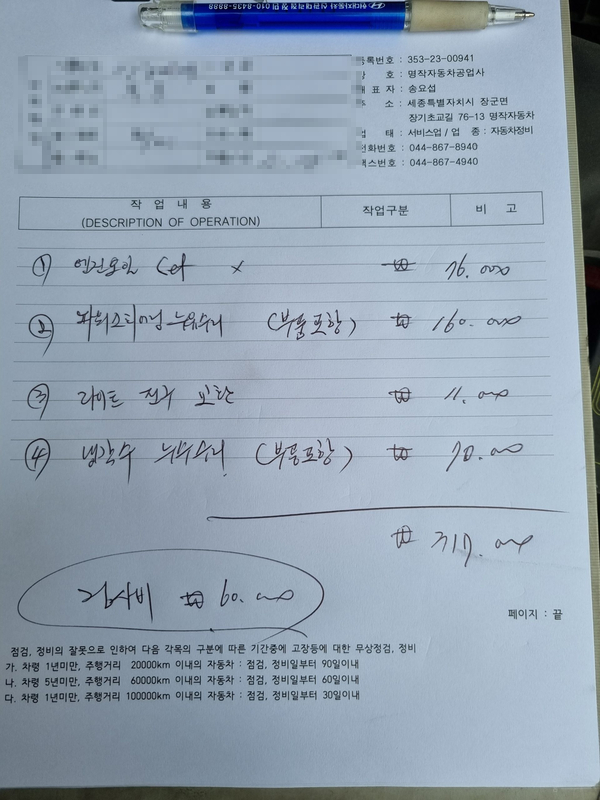 현대자동차 신관대리점 010-8435-8888
등록번호 : 353-23-00941
호 : 명작자동차공업사
대 표 자 : 송요섭
주 소 : 세종특별자치시 장군면
장기초교길 76-13 명작자동차
업 태 : 서비스업 / 업 종 : 자동차정비
전화번호 : 044-867-8940
팩스번호 : 044-867-4940
작 업 내 용 작업구분 비 고
(DESCRIPTION OF OPERATION)
① 엔진오일 Set x ₩ 76.000
② 파워스티어링 누유수리 (부품포함) ₩ 160.000
③ 라이트 전구 교환 ₩ 11.000
④ 냉각수 누수수리 (부품포함) ₩ 70.000
₩ 317.000
검사비 ₩ 60.000
페이지 : 끝
점검, 정비의 잘못으로 인하여 다음 각목의 구분에 따른 기간중에 고장등에 대한 무상점검, 정비
가. 차령 1년미만, 주행거리 20000km 이내의 자동차 : 점검, 정비일부터 90일이내
나. 차령 5년미만, 주행거리 60000km 이내의 자동차 : 점검, 정비일부터 60일이내
다. 차령 1년미만, 주행거리 100000km 이내의 자동차 : 점검, 정비일부터 30일이내